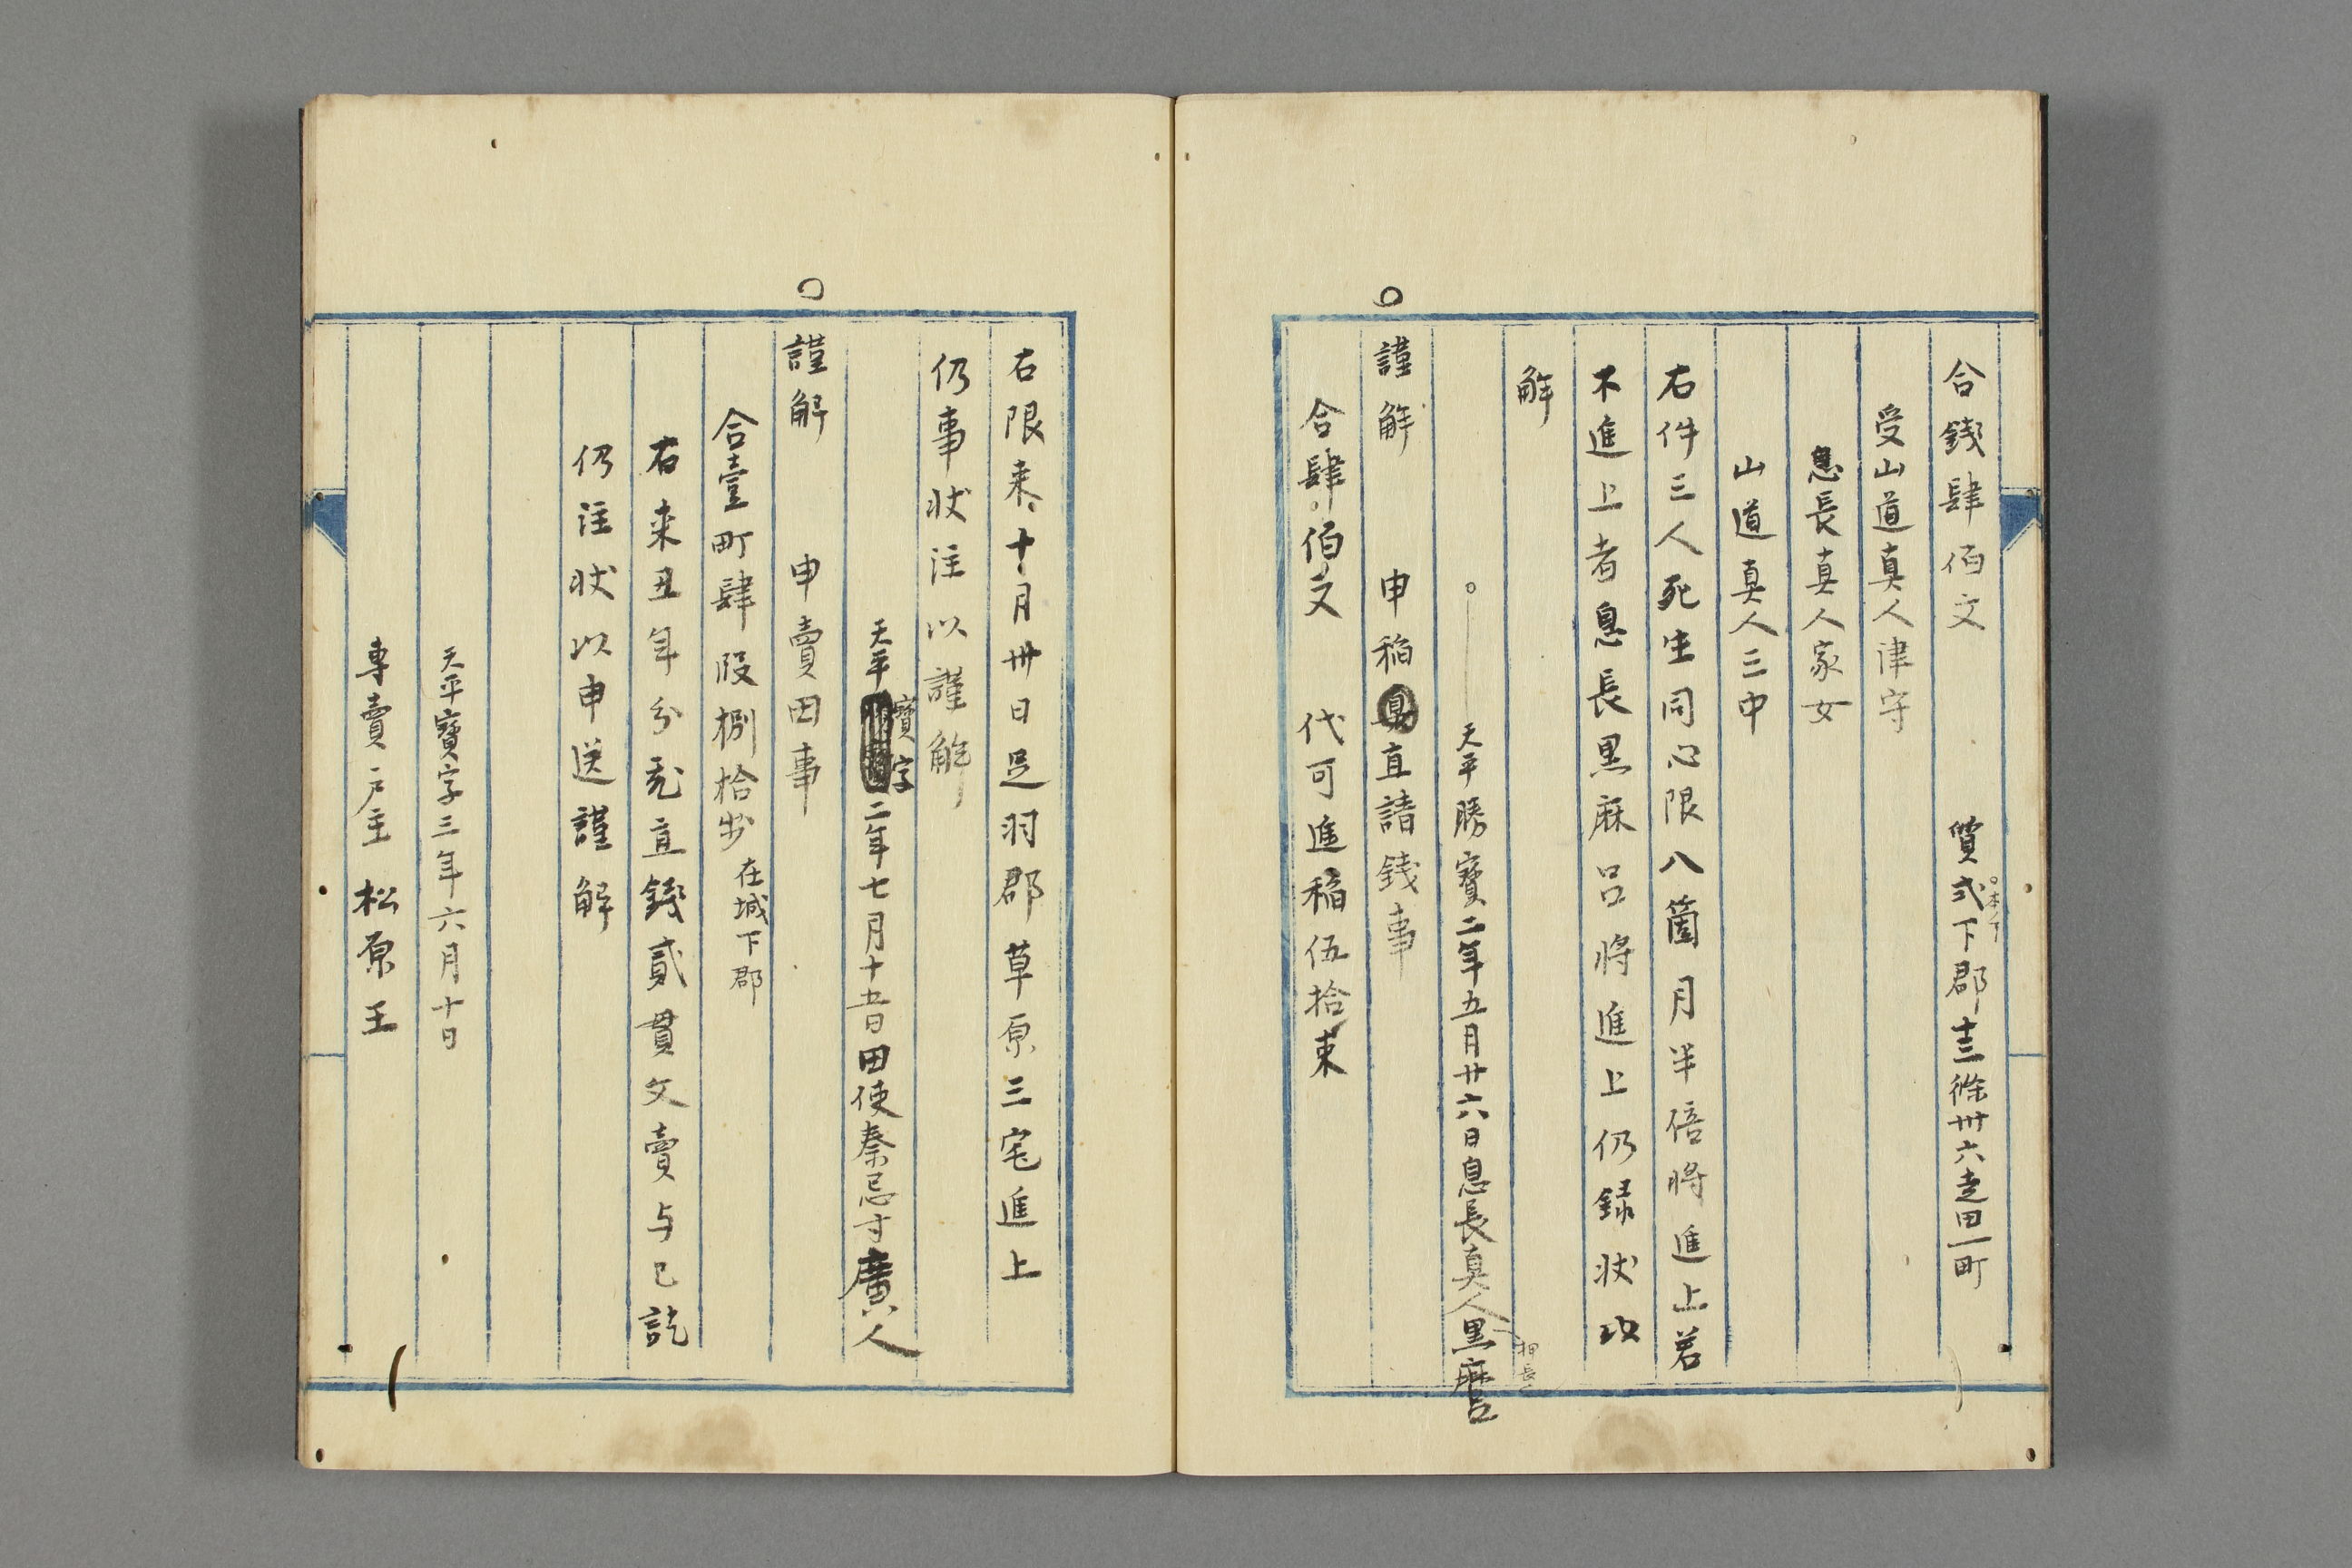 合錢肆佰文　質式下郡十三條卅六走田一町
本ノマヽ
受山道真人津守
息長真人家女
山道真人三中
右件三人死生同心限八箇月半倍將進上若
不進上者息長黒麻呂將進上仍録状以
解
天平勝寶二年五月廿六日息長真人黒麿
謹解　申稲直請錢事
合肆佰文　代可進稲伍拾束
右限来十月卅日足羽郡草原三宅進上
仍事状注以謹解
天平寶字二年七月十五日田使秦忌寸廣人
謹解　申賣田事
合壹町肆段捌拾歩 在城下郡
右来丑年分充直錢貳貫文賣与已訖
仍注状以申送謹解
天平寶字三年六月十日
専賣戸主　松原王